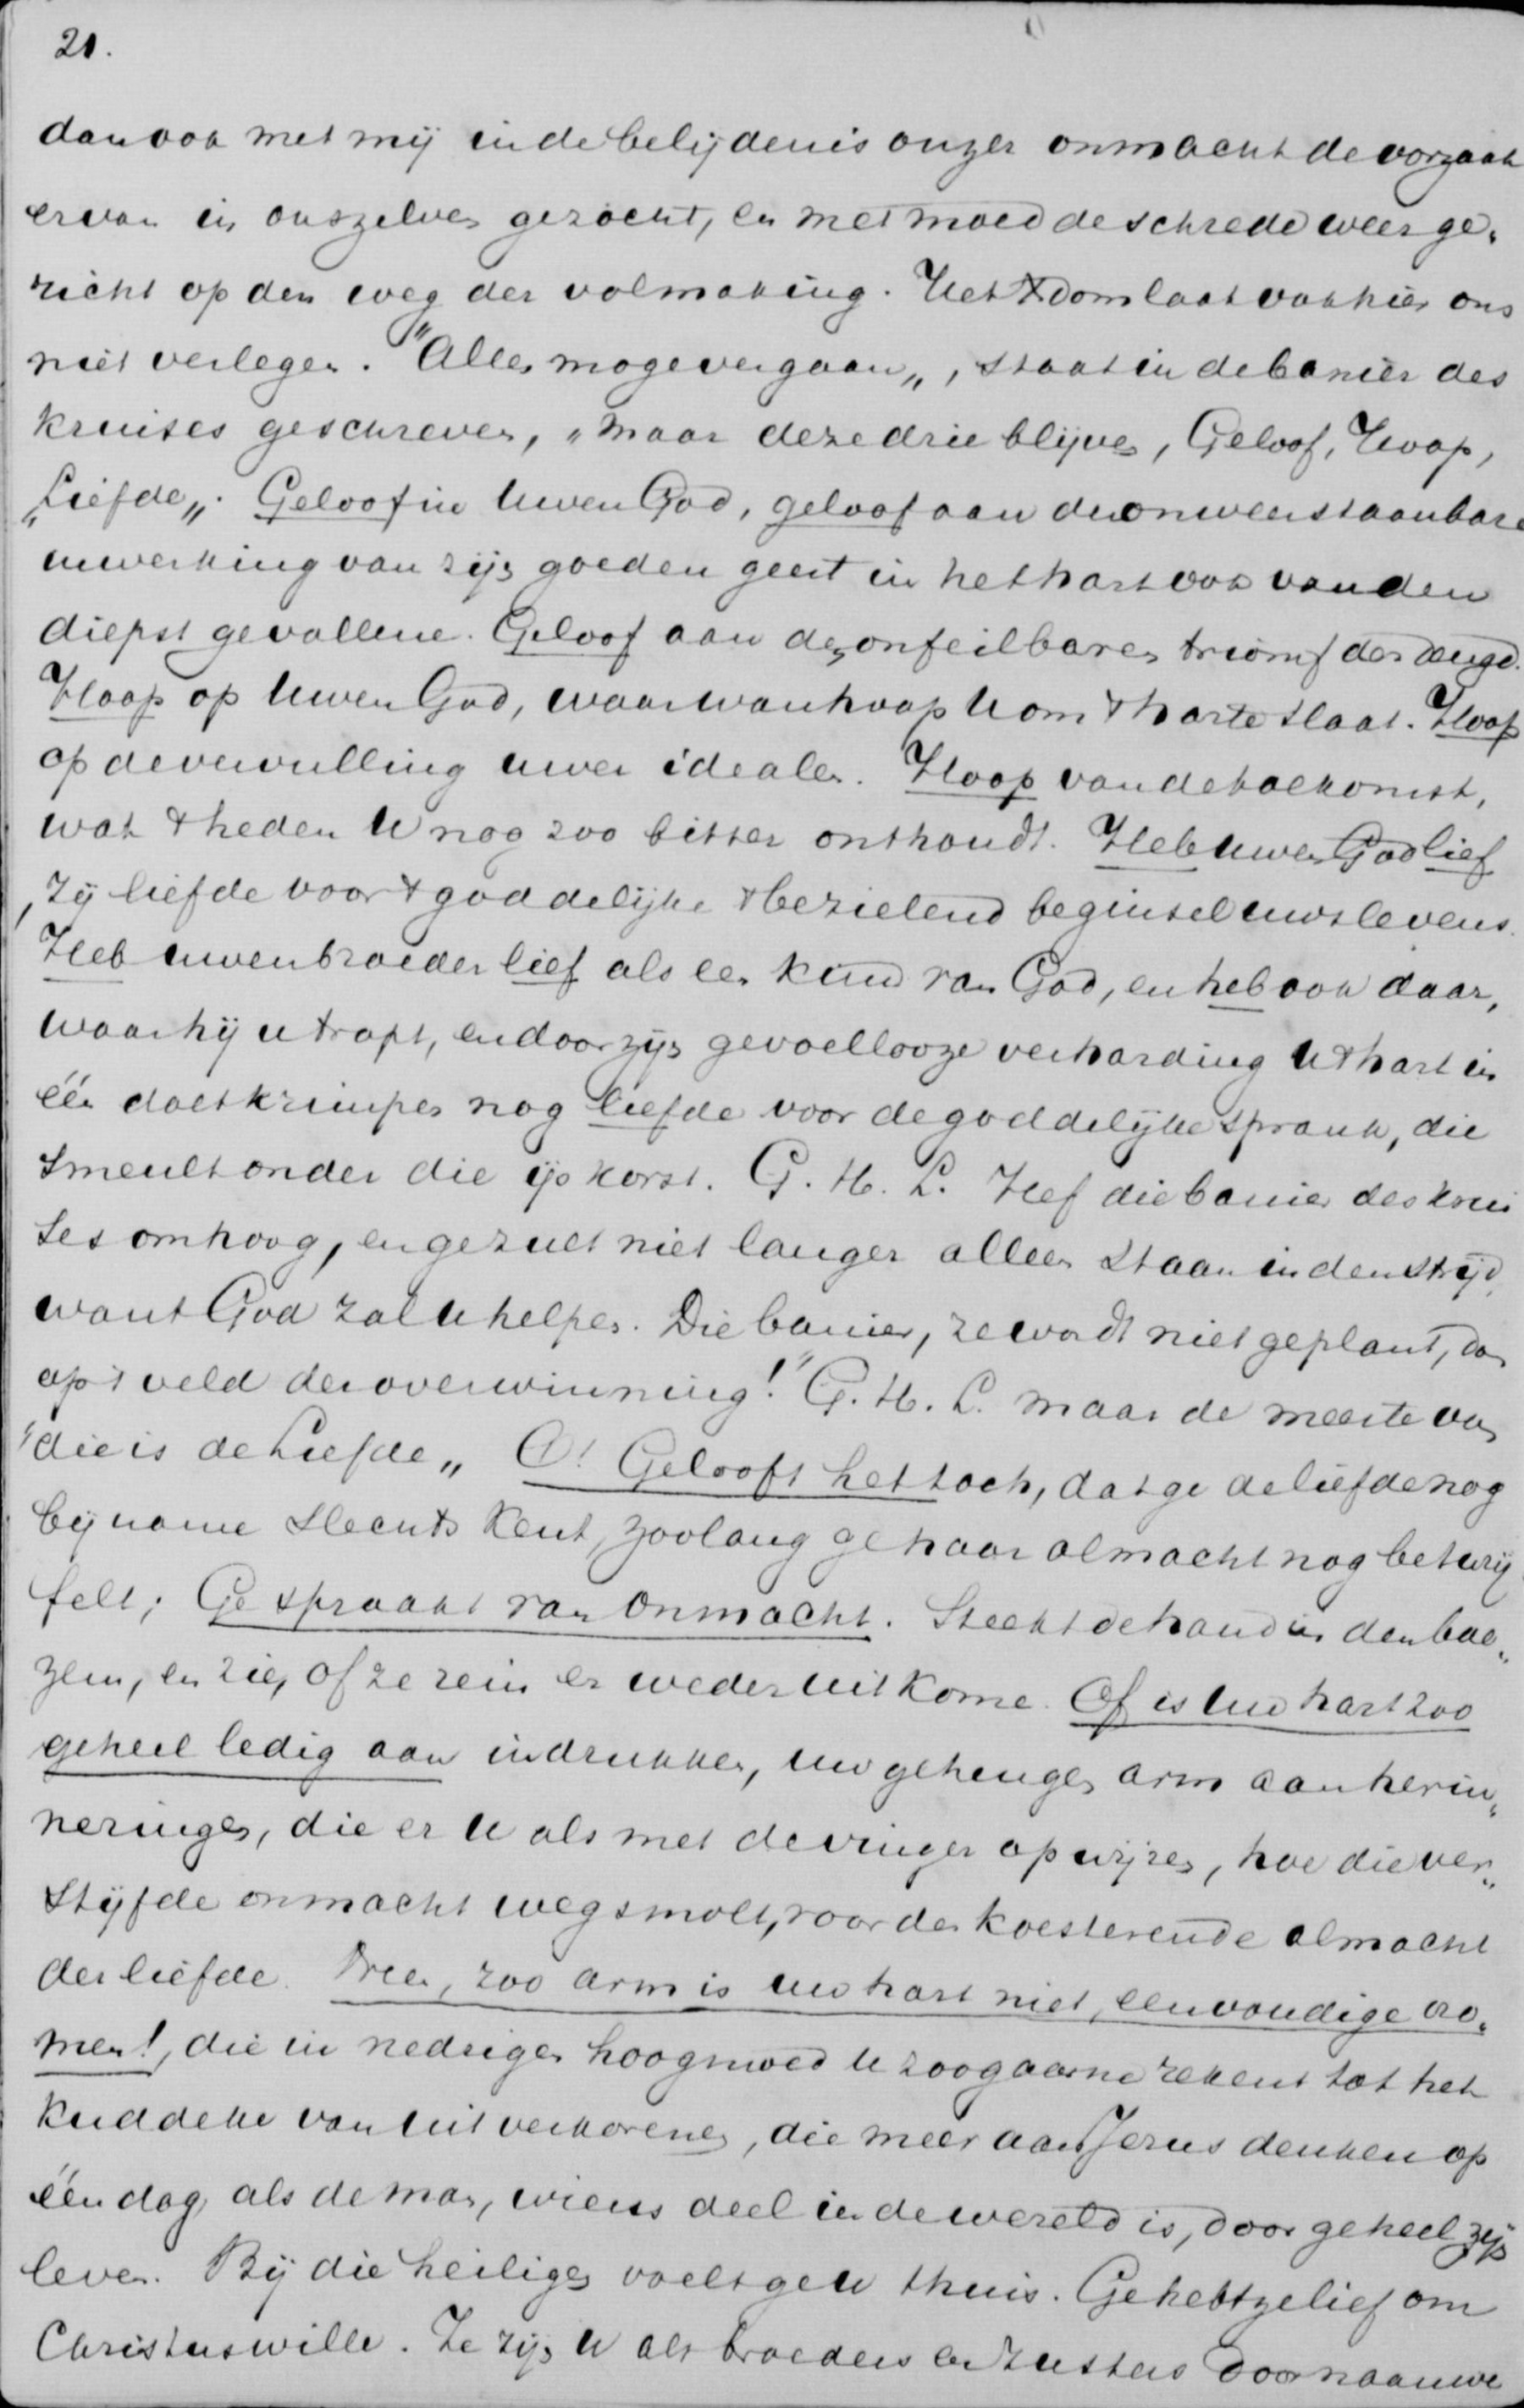 21.
dan ook met mij in de belijdenis onzer onmacht de oorzaak
ervan in onszelven gezocht, en met moed de schrede weer ge„
richt op den weg der volmaking. Het Xdom laat ook hier ons
niet verlegen. "Alles moge vergaan„, staat in de banier des
kruises geschreven, „maar deze drie blijven, Geloof, Hoop,
„Liefde„. Geloof in Uwen God, geloof aan de onweerstaanbare
inwerking van zijn goeden geest in het hart ook van den
diepst gevallene. Geloof aan den onfeilbaren triomf der deugd.
Hoop op Uwen God, waar wanhoop U om 't harte slaat. Hoop
op de vervulling uwer idealen. Hoop van de toekomst,
wat 't heden U nog zoo bitter onthoudt. Heb Uwen God lief
, zij liefde voor 't goddelijke 't bezielend beginsel uws levens.
Heb uwen broeder lief als een kind van God, en heb ook daar,
waar hij u trapt, en door zijn gevoellooze verharding U 't hart in
één doet krimpen nog liefde voor de goddelijke sprank, die
smeult onder die ijskorst. G. H. L. Hef die banier des krui
ses omhoog, en ge zult niet langer alleen staan in den strijd,
want God zal U helpen. Die banier, ze wordt niet geplant, dan
op 't veld der overwinning!" G. H. L. maar de meeste van
"die is de Liefde„ O! Gelooft het toch, dat ge de liefde nog
bij name slechts kent, zoolang ge haar almacht nog betwij
felt; Ge spraakt van onmacht. Steekt de hand in den boe„
zem, en zie, of ze rein er weder uitkome. Of is Uw hart zoo
geheel ledig aan indrukken, uw geheugen arm aan herin„
neringen, die er U als met de vinger op wijzen, hoe die ver„
stijfde onmacht wegsmolt, voor de koesterende almacht
der liefde. Neen, zoo arm is uw hart niet, eenvoudige vro„
men!, die in nedrigen hoogmoed U zoo gaarne rekent tot het
kuddeke van uitverkorenen, die meer aan Jezus denken op
één dag als de man, wiens deel in de wereld is, door geheel zijn
leven. Bij die heiligen voelt ge U thuis. Ge hebt ze lief om
Christuswille. Ze zijn U als broeders en zusters door naauwe